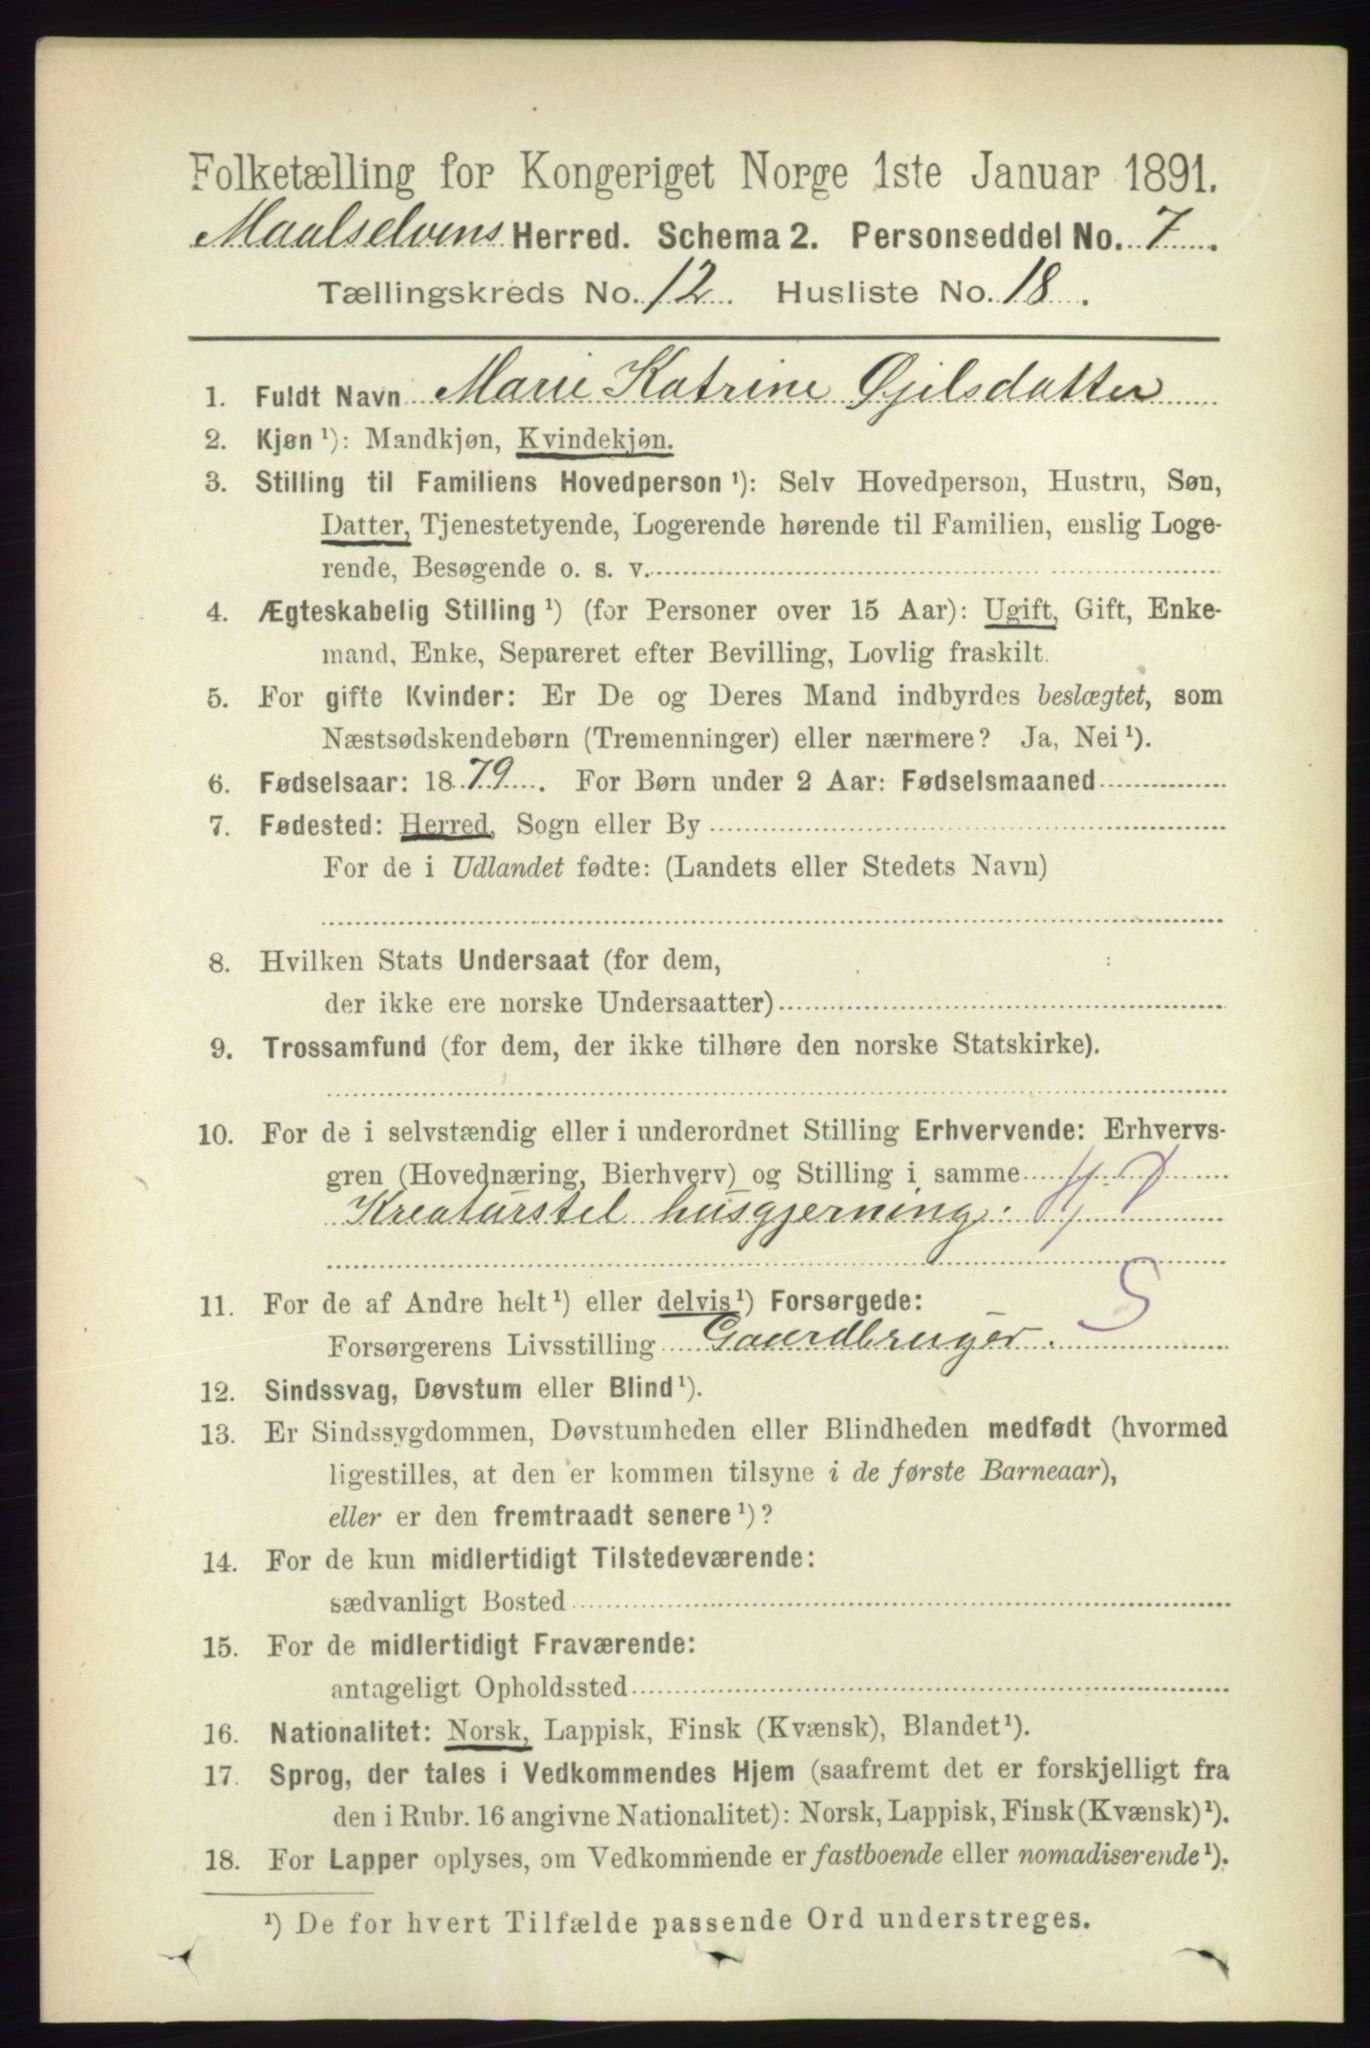 Folketælling for Kongeriget Norge 1ste Januar 1891.
Maalselvens Herred. Schema 2. Personseddel No. 7.
Tællingskreds No. 12. Husliste No. 18.
1. Fuldt Navn Marie Katrine Øjilsdatter
2. Kjøn ¹): Mandkjøn, Kvindekjøn.
3. Stilling til Familiens Hovedperson ¹): Selv Hovedperson, Hustru, Søn,
Datter, Tjenestetyende, Logerende hørende til Familien, enslig Loge-
rende, Besøgende o. s. v.
4. Ægteskabelig Stilling ¹) (for Personer over 15 Aar): Ugift, Gift, Enke-
mand, Enke, Separeret efter Bevilling, Lovlig fraskilt.
5. For gifte Kvinder: Er De og Deres Mand indbyrdes beslægtet, som
Næstsødskendebørn (Tremenninger) eller nærmere? Ja, Nei ¹).
6. Fødselsaar: 1879. For Børn under 2 Aar: Fødselsmaaned
7. Fødested: Herred, Sogn eller By
For de i Udlandet fødte: (Landets eller Stedets Navn)
8. Hvilken Stats Undersaat (for dem,
der ikke ere norske Undersaatter)
9. Trossamfund (for dem, der ikke tilhøre den norske Statskirke).
10. For de i selvstændig eller i underordnet Stilling Erhvervende: Erhvervs-
gren (Hovednæring, Bierhverv) og Stilling i samme
Kreaturstel husgjerning.
11. For de af Andre helt ¹) eller delvis ¹) Forsørgede: S
Forsørgerens Livsstilling Gaardbruger.
12. Sindssvag, Døvstum eller Blind ¹).
13. Er Sindssygdommen, Døvstumheden eller Blindheden medfødt (hvormed
ligestilles, at den er kommen tilsyne i de første Barneaar),
eller er den fremtraadt senere ¹)?
14. For de kun midlertidigt Tilstedeværende:
sædvanligt Bosted
15. For de midlertidigt Fraværende:
antageligt Opholdssted
16. Nationalitet: Norsk, Lappisk, Finsk (Kvænsk), Blandet ¹).
17. Sprog, der tales i Vedkommendes Hjem (saafremt det er forskjelligt fra
den i Rubr. 16 angivne Nationalitet): Norsk, Lappisk, Finsk (Kvænsk) ¹).
18. For Lapper oplyses, om Vedkommende er fastboende eller nomadiserende ¹).
¹) De for hvert Tilfælde passende Ord understreges.